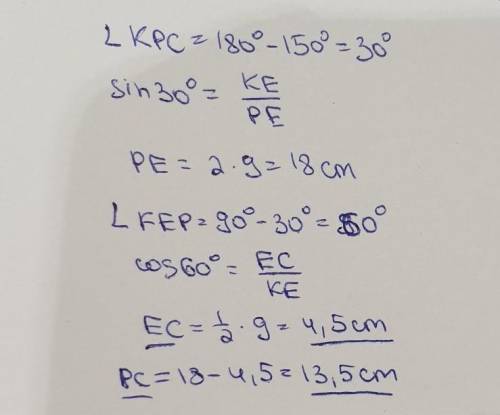 ∠KPC = 180° - 150° = 30°
sin30° = KE/PE
PE = 2 · 9 = 18 cm
∠KEP = 90° - 30° = 60°
cos60° = EC/KE
EC = 1/2 · 9 = 4,5 cm
PC = 18 - 4,5 = 13,5 cm